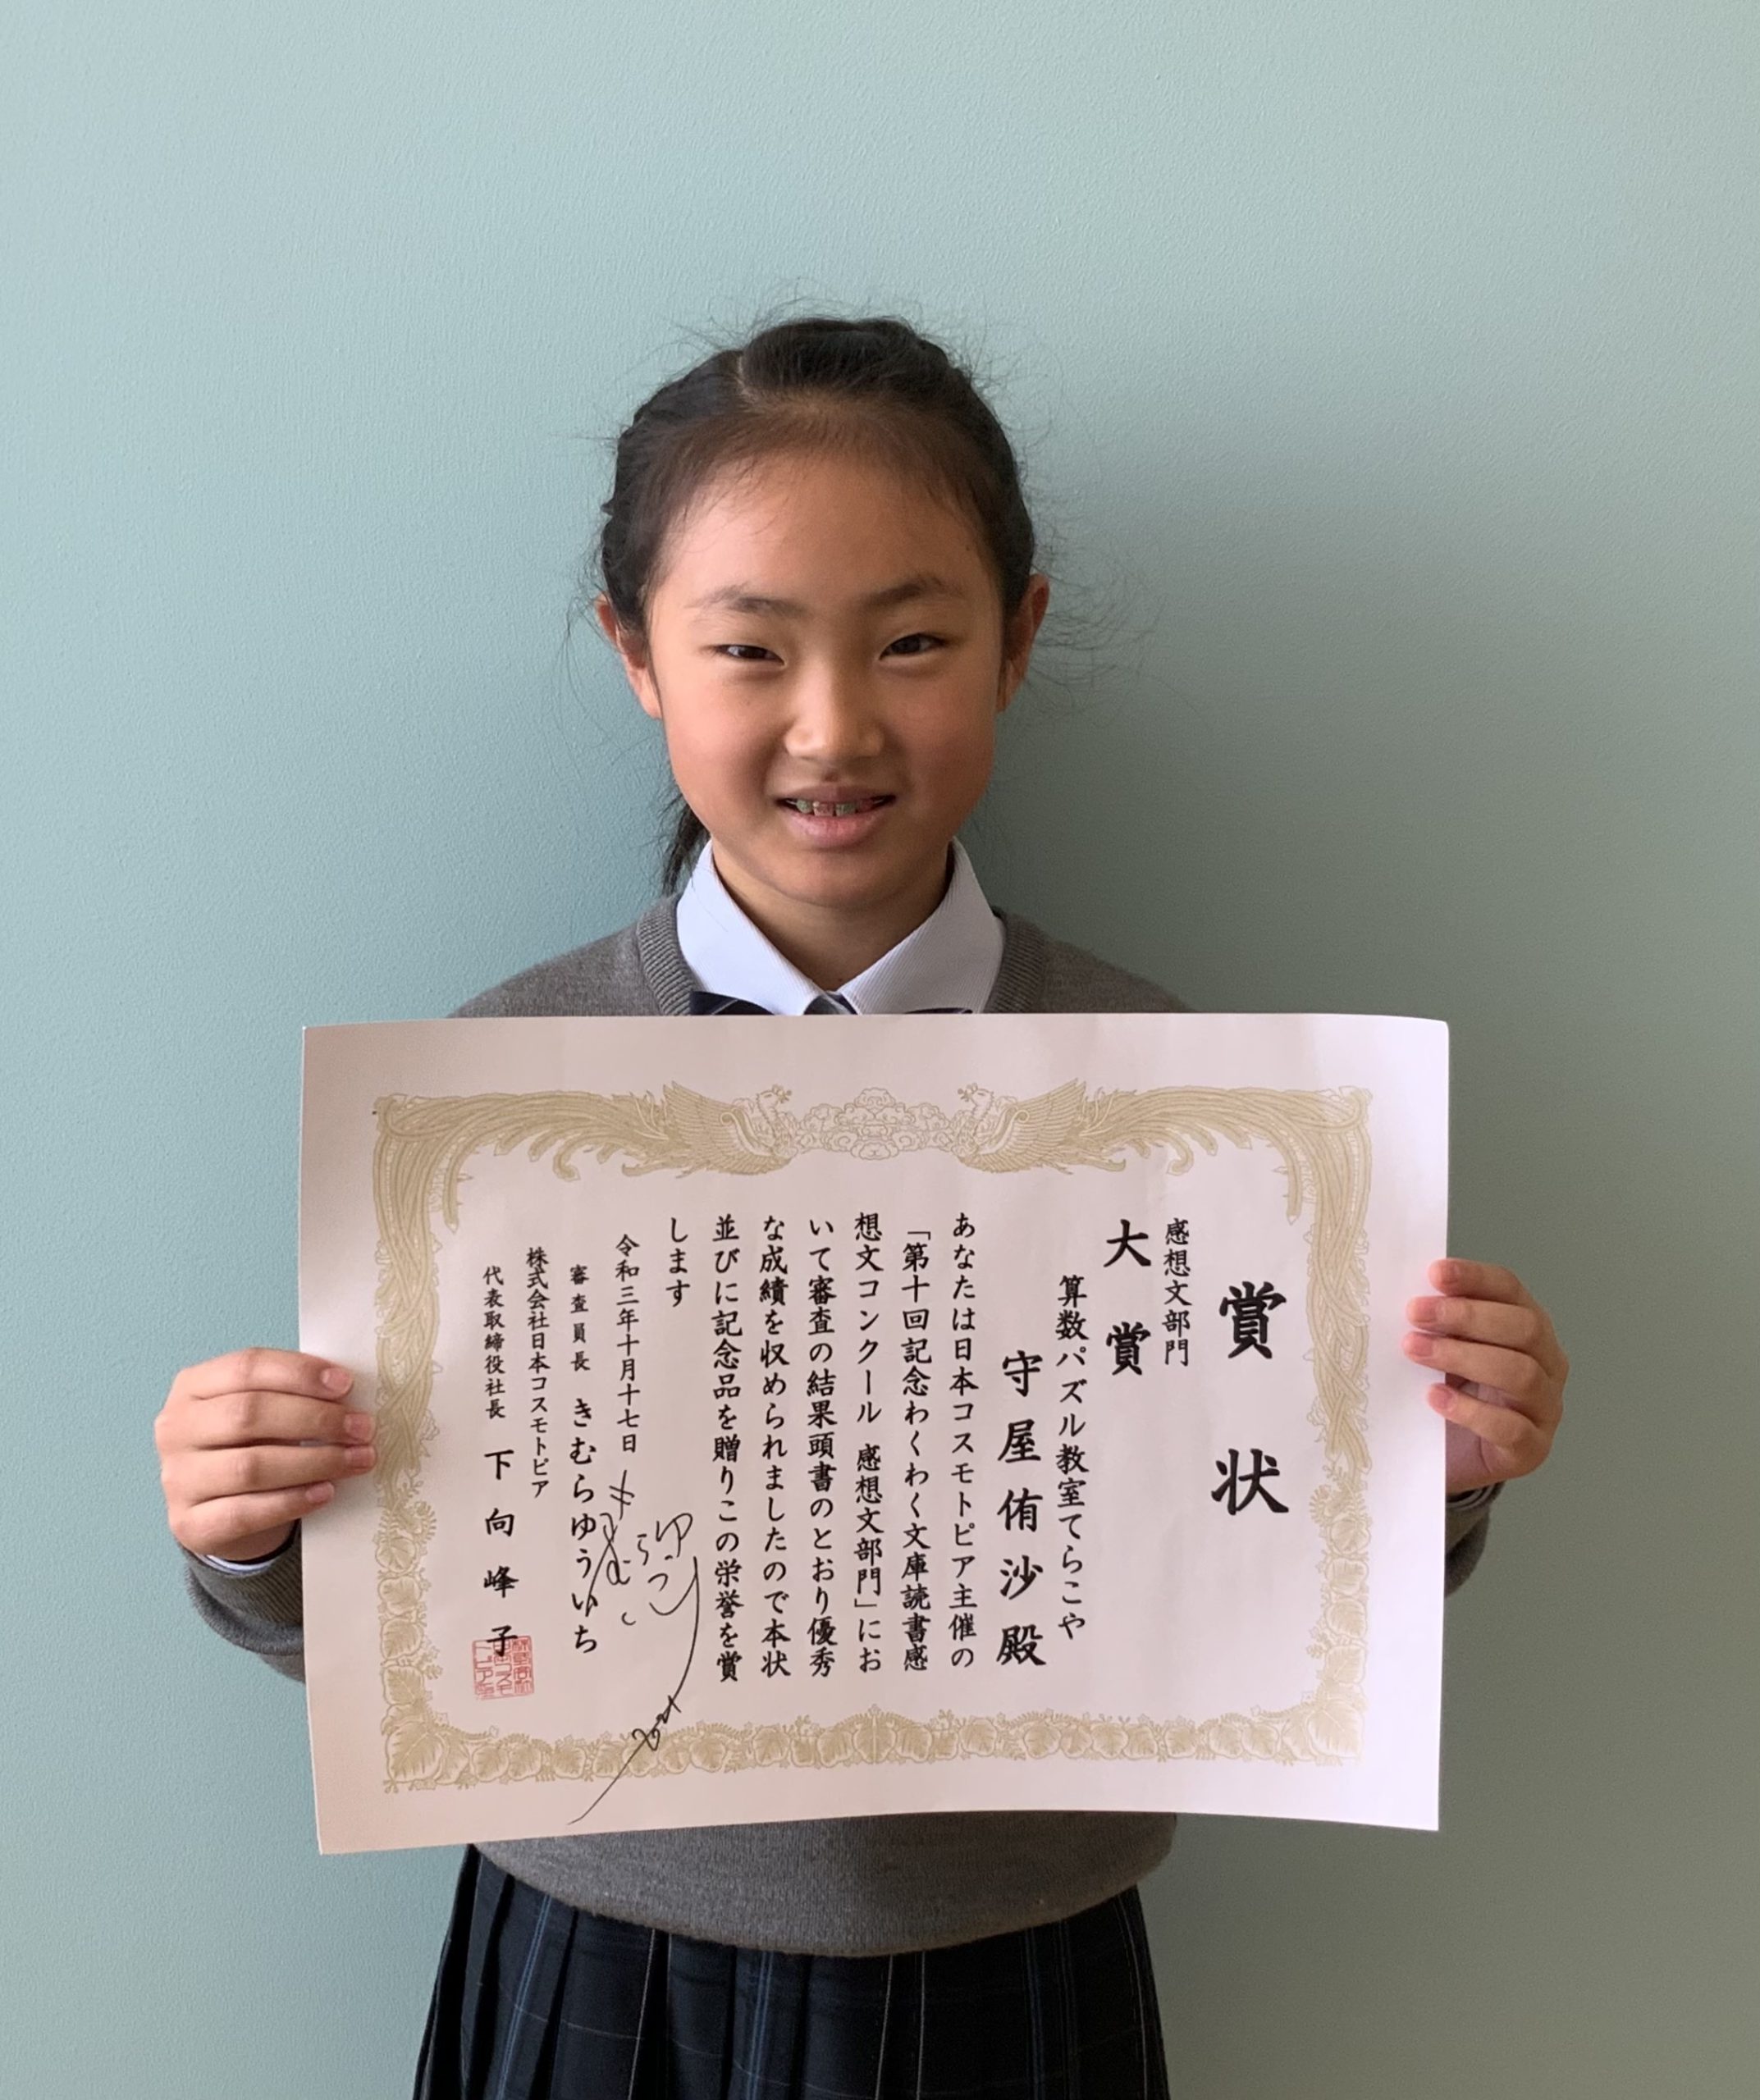 賞状
感想文部門
大賞
算数パズル教室てらこや
守屋侑沙殿
あなたは日本コスモトピア主催の
「第十回記念わくわく文庫読書感
想文コンクール 感想文部門」にお
いて審査の結果頭書のとおり優秀
な成績を収められましたので本状
並びに記念品を贈りこの栄誉を賞
します
令和三年十月十七日
審査員長 きむらゆういち
2021
株式会社日本コスモトピア
代表取締役社長 下向峰子